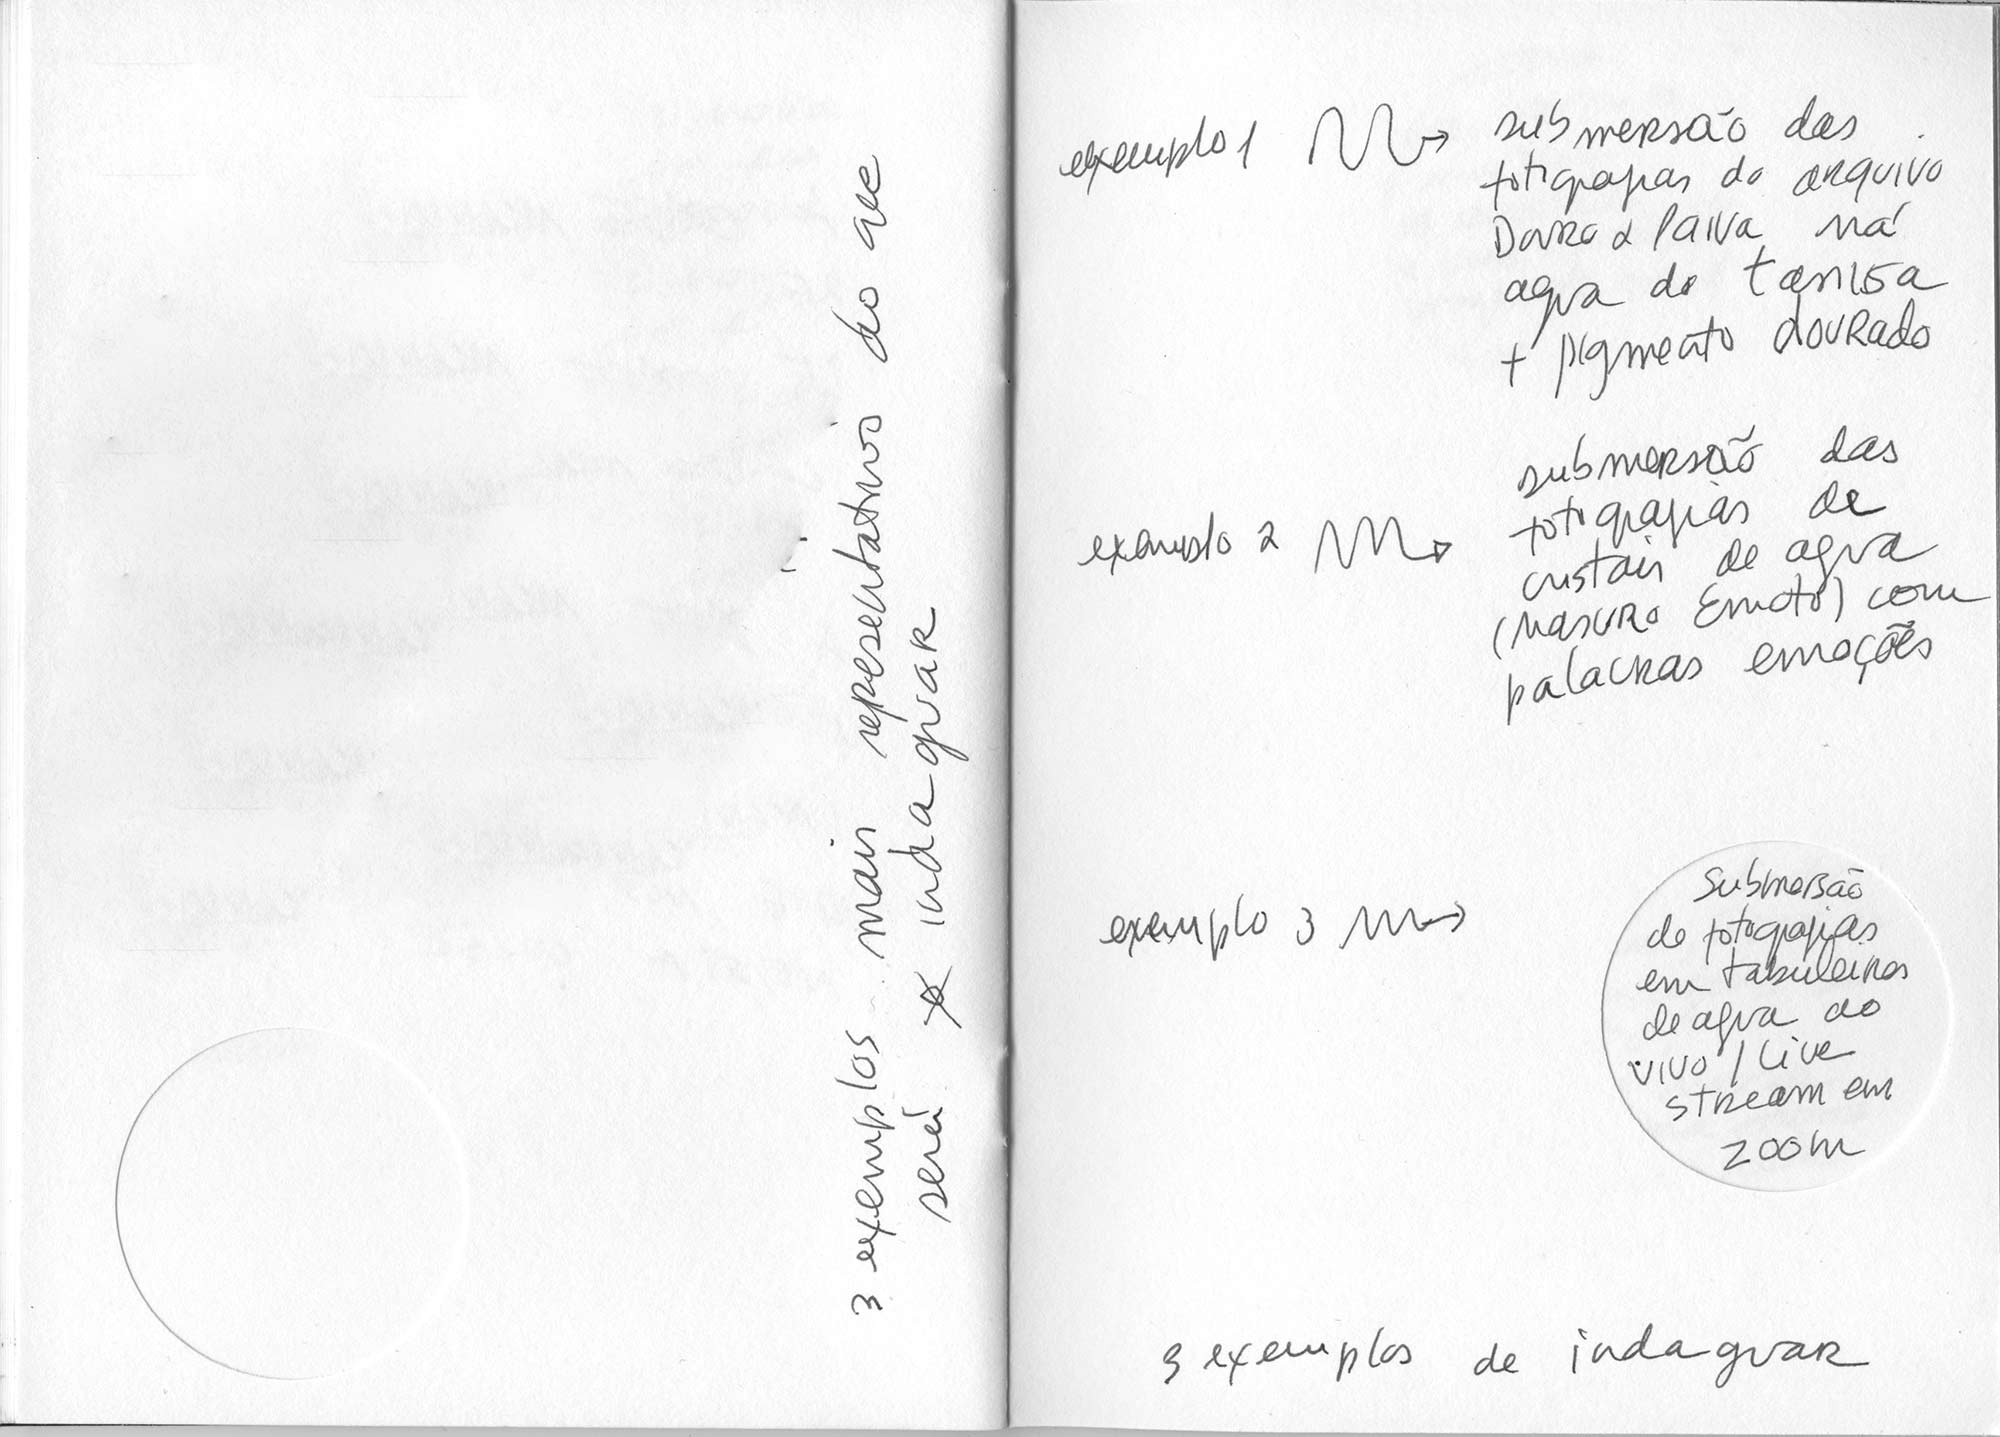 3 exemplos mais representativos do que
será indaguar
exemplo 1
submersão das
fotografias do arquivo
Douro & Paiva na
agua do tamisa
+ pigmento dourado
exemplo 2
submersão das
fotografias de
cristais de agua
(Masuro Emoto) com
palavras emoções
exemplo 3
submersão
de fotografias
em tabuleiros
de agua ao
vivo / Live
stream em
zoom
3 exemplos de indaguar